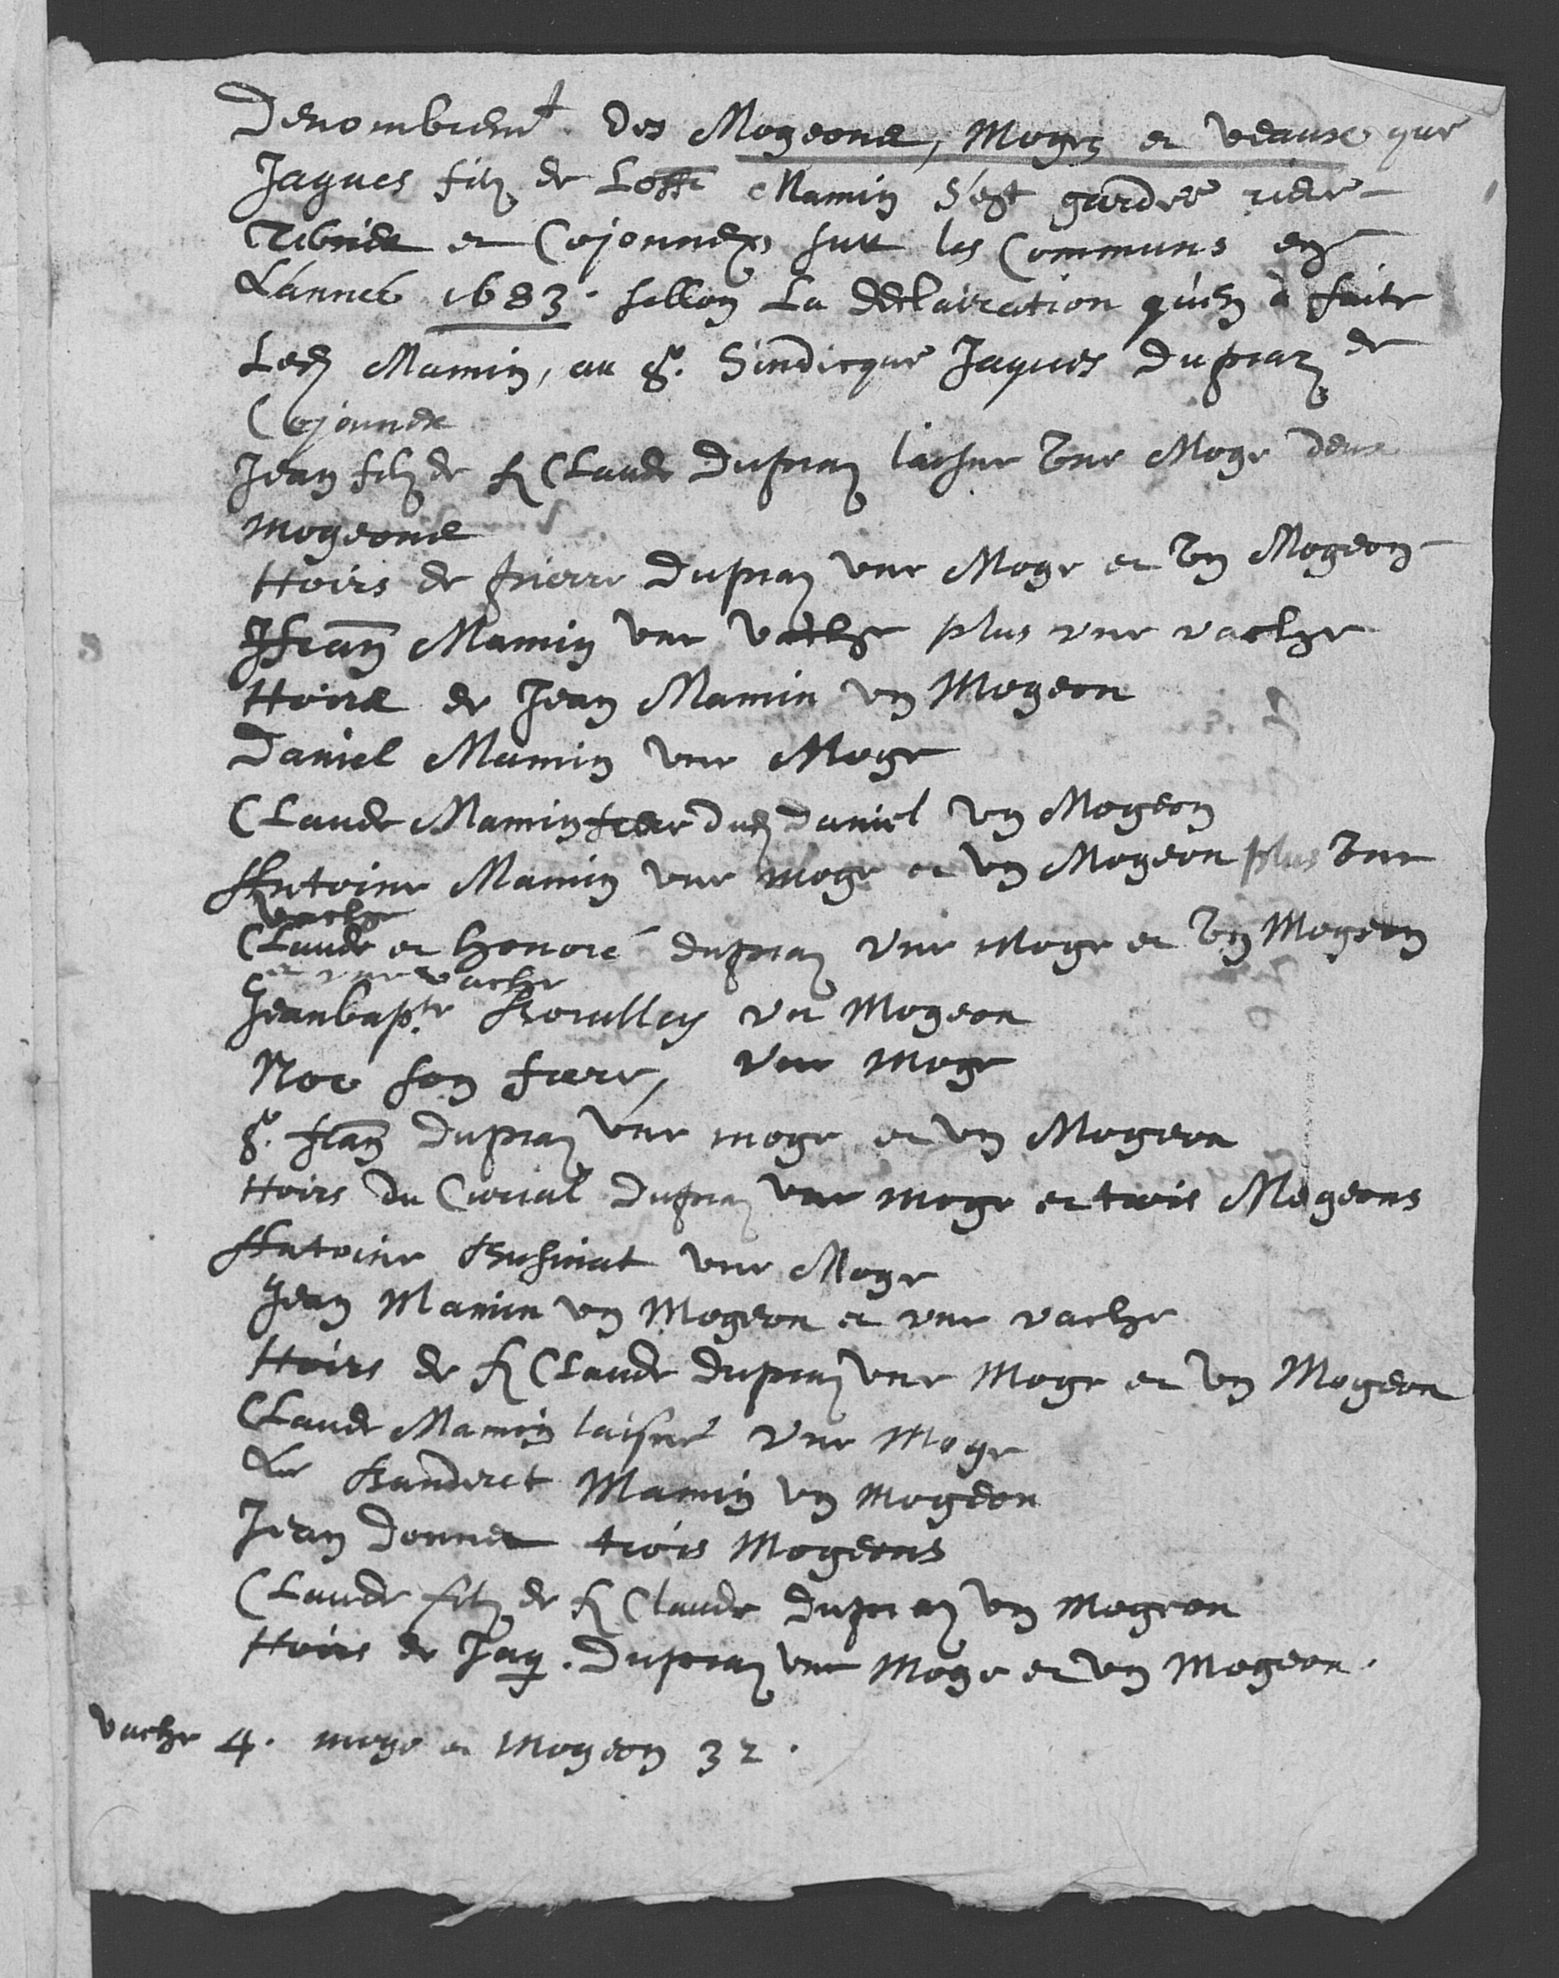 Denombrem.t des Mogeons, Moges et veaux que
Jaques filz de Loffi Mamin s'est gardée riere
et Cojonnex sur les Communs en
L'année 1683. sellon La desclairation qu'en à faite
Led. Mamin, au S.r Sindicque Jaques Dupraz de
Cojonnex
Jean filz de f. Claude Dupraz laisne Une Moge deux
mogeons
Hoirs de pierre Dupraz une Moge et Un Mogeon
Jean Mamin une vache plus une vache
Hoirs de Jean Mamin un Mogeon
Daniel Mamin une Moge
Claude Mamin frere dud. Daniel un Mogeon
Antoine Mamin une moge et un Mogeon plus Une
vache
Claude et honoré dupraz une Moge et Un Mogeon
et une vache
Jeanbap.te un Mogeon
Noe son frere, une moge
S.r fran Dupraz une moge et un Mogeon
Hoirs du Curial Dupraz une moge et trois Mogeons
Antoine une Moge
Jean Mamin un Mogeon et une vache
Hoirs de f. Claude dupraz une Moge et un Mogeon
Claude Mamin laisné une Moge
Le Banderet Mamin un mogeon
Jean Donnet trois Mogeons
Claude filz de f. Claude Dupraz un mogeon
Hoirs de Jaq. Dupraz une Moge et un Mogeon.
vache 4. moge et Mogeon 32.